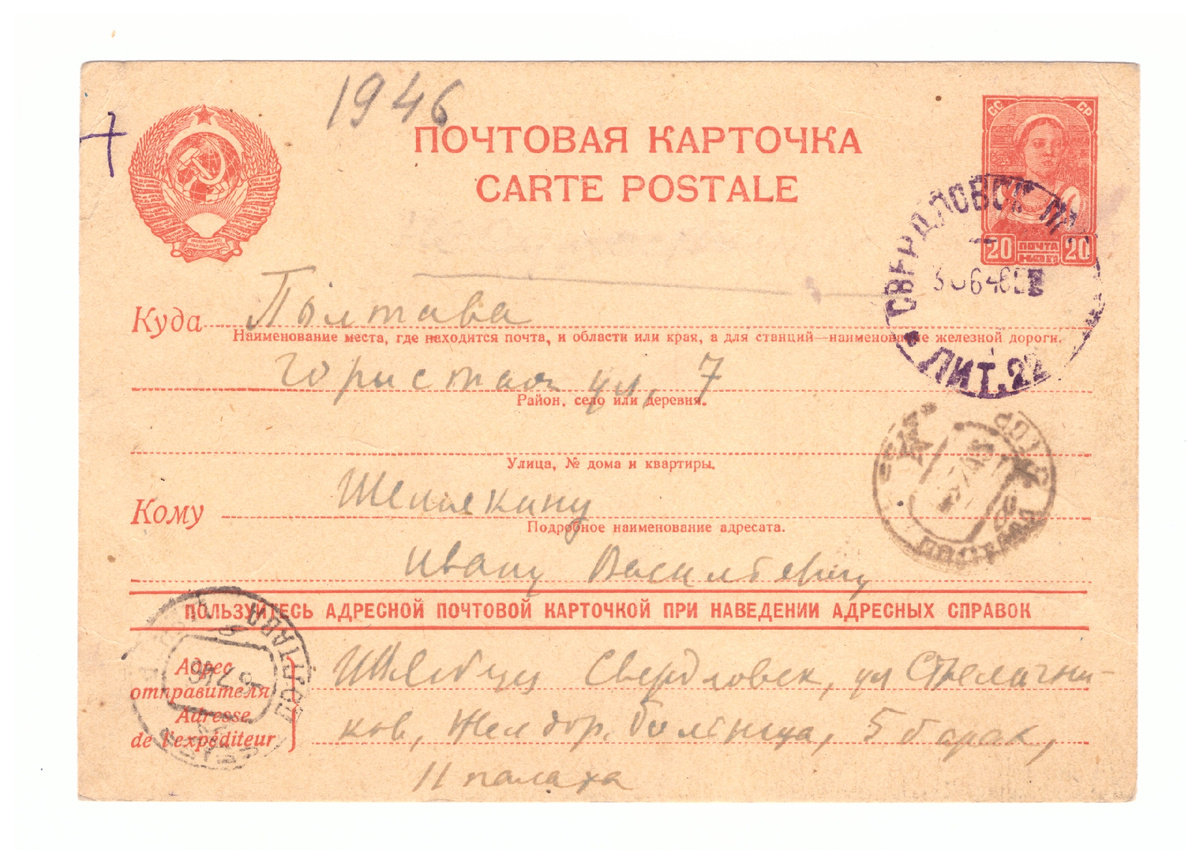 1946
ПОЧТОВАЯ КАРТОЧКА
CARTE POSTALE
СС СР
20 ПОЧТА 20
СВЕРДЛОВСК
ЛИТ. 22
Куда Полтава
Наименование места, где находится почта, и области или края, а для станций—наименование железной дороги.
Гористая ул, 7
Район, село или деревня.
Улица, № дома и квартиры.
Кому
Подробное наименование адресата.
Ивану Васильевичу
ПОЛЬЗУЙТЕСЬ АДРЕСНОЙ ПОЧТОВОЙ КАРТОЧКОЙ ПРИ НАВЕДЕНИИ АДРЕСНЫХ СПРАВОК
Адрес отправителя
Adresse de l'expéditeur
Свердловск, ул Стрелочни-
ков, Желдор. больница, 5 барак,
11 палата
ПОЛТАВА